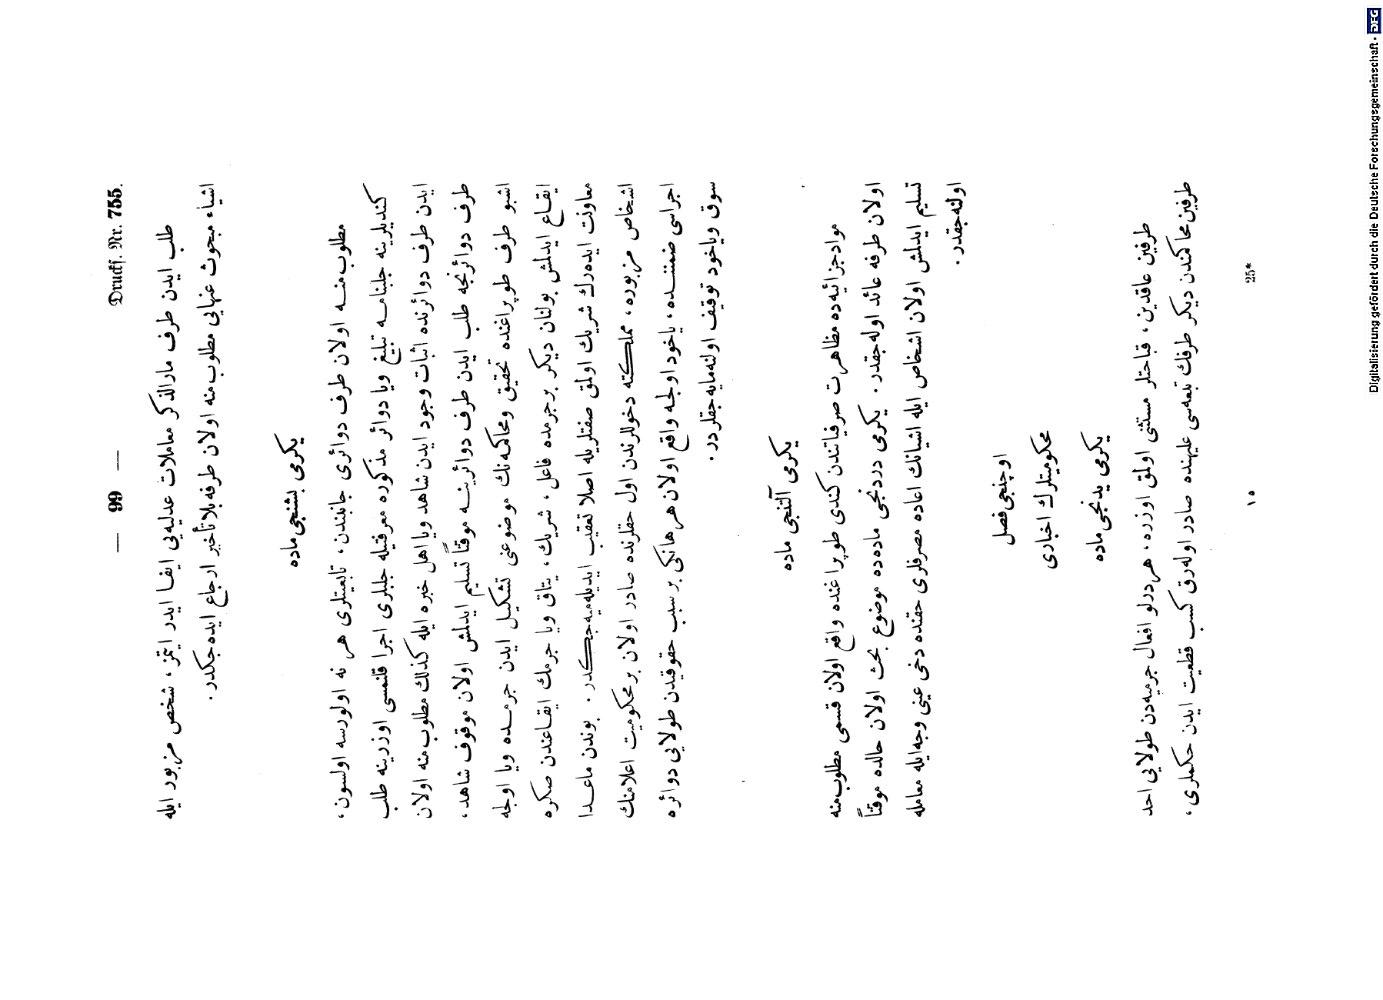 — 99 —
Drucks. Nr. 755.
طلب ایدن طرف مارالذكر معاملات عدلیه‌یی ایفا ایدر ایتمز، شخص مزبور ایله
اشیاء مبحوث عنهایی مطلوب‌منه اولان طرفه بلا تأخیر ارجاع ایده‌جكدر.
یكرمی بشنجی ماده
مطلوب‌منه اولان طرف دوائری جانبندن، تابعیتلری هر نه اولورسه اولسون،
كندیلرینه جلبنامه تبلیغ ویا دوائر مذكوره معرفتیله جلبلری اجرا قلنمسی اوزرینه طلب
ایدن طرف دوائرنده اثبات وجود ایدن شاهد ویا اهل خبره ایله كذلك مطلوب‌منه اولان
طرف دوائرنجه طلب ایدن طرف دوائرینه موقتاً تسلیم ایدلمش اولان موقوف شاهد،
اشبو طرف طوپراغنده تحقیق ومحاكمه‌نك موضوعنی تشكیل ایدن جرمده ویا اولجه
ایقاع ایدلمش بولنان دیكر بر جرمده فاعل، شریك، یتاق ویا جرمك ایقاعندن صكره
معاونت ایده‌رك شریك اولمق صفتلریله اصلا تعقیب ایدیله‌میه‌جكدر. بوندن ماعدا
اشخاص مزبوره، مملكته دخوللرندن اول حقلرنده صادر اولان بر محكومیت اعلامنك
اجراسی ضمننده، یاخود اولجه واقع اولان هر هانكی بر سبب حقوقیدن طولایی دوائره
سوق ویاخود توقیف اولنه‌مایه‌جقلردر.
یكرمی آلتنجی ماده
مواد جزائیه‌ده مظاهرت صرفیاتندن كندی طوپراغنده واقع اولان قسمی مطلوب‌منه
اولان طرفه عائد اوله‌جقدر. یكرمی دردنجی ماده‌ده موضوع بحث اولان حالده موقتاً
تسلیم ایدلمش اولان اشخاص ایله اشیانك اعاده مصرفلری حقنده دخی عینی وجه‌ایله معامله
اولنه‌جقدر.
اوچنجی فصل
محكومیتلرك اخباری
یكرمی یدنجی ماده
طرفین عاقدین، قباحتلر مستثنی اولمق اوزره، هر درلو افعال جرمیه‌دن طولایی احد
طرفین محاكمندن دیكر طرفك تبعه‌سی علیهنده صادر اوله‌رق كسب قطعیت ایدن حكملری،
١٥
25*
Digitalisierung gefördert durch die Deutsche Forschungsgemeinschaft - DFG